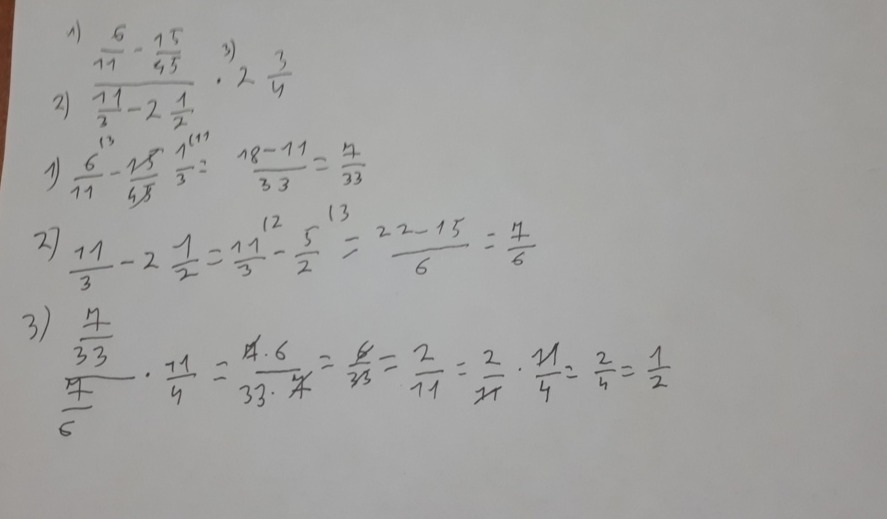 1) 6/11 - 15/45 3)
2) 11/3 - 2 1/2 · 2 3/4
1) 6/11 (3 - 15/45 1/3 (11 = 18-11/33 = 7/33
2) 11/3 - 2 1/2 = 11/3 (2 - 5/2 (3 = 22-15/6 = 7/6
3) 7/33 / 7/6 · 11/4 = 7·6/33·7 = 6/33 = 2/11 = 2/11 · 11/4 = 2/4 = 1/2